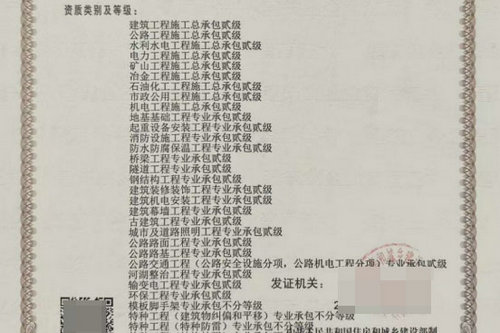 资质类别及等级：
建筑工程施工总承包贰级
公路工程施工总承包贰级
水利水电工程施工总承包贰级
电力工程施工总承包贰级
矿山工程施工总承包贰级
冶金工程施工总承包贰级
石油化工工程施工总承包贰级
市政公用工程施工总承包贰级
机电工程施工总承包贰级
地基基础工程专业承包贰级
起重设备安装工程专业承包贰级
消防设施工程专业承包贰级
防水防腐保温工程专业承包贰级
桥梁工程专业承包贰级
隧道工程专业承包贰级
钢结构工程专业承包贰级
建筑装修装饰工程专业承包贰级
建筑机电安装工程专业承包贰级
建筑幕墙工程专业承包贰级
古建筑工程专业承包贰级
城市及道路照明工程专业承包贰级
公路路面工程专业承包贰级
公路路基工程专业承包贰级
公路交通工程（公路安全设施分项，公路机电工程分项）专业承包贰级
河湖整治工程专业承包贰级
输变电工程专业承包贰级
发证机关：
环保工程专业承包贰级
模板脚手架专业承包不分等级
2
特种工程（建筑物纠偏和平移）专业承包不分等级
特种工程（特种防雷）专业承包不分等级
中华人民共和国住房和城乡建设部制